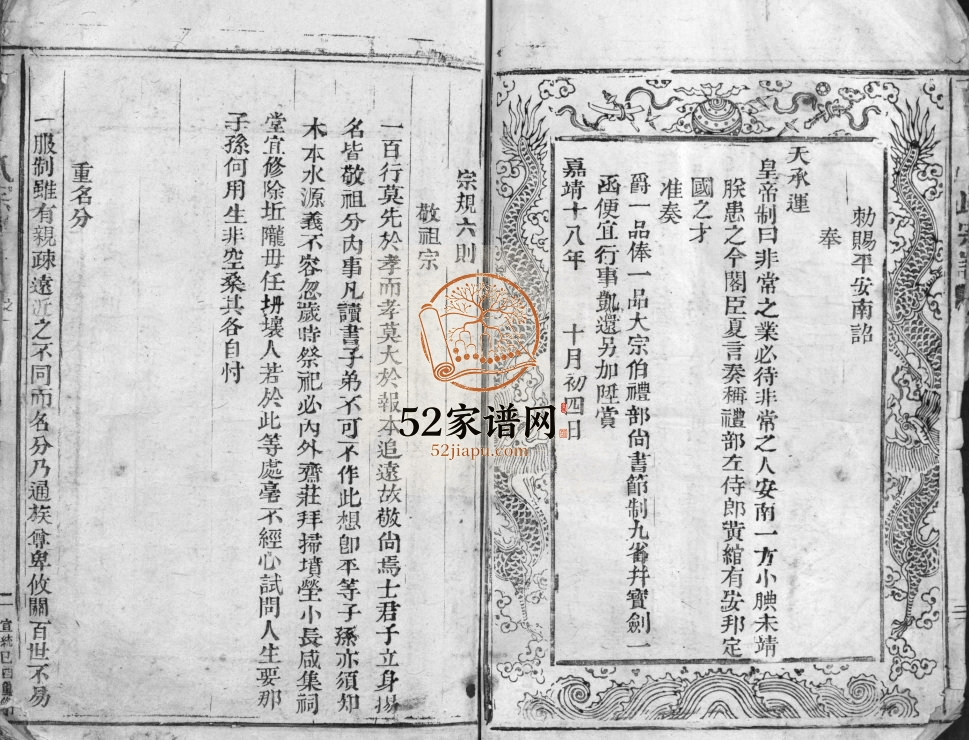 勅賜平安南詔
奉
天承運
皇帝制曰非常之業必待非常之人安南一方小腆未靖
朕患之今閣臣夏言奏稱禮部左侍郎黃綰有安邦定
國之才
准奏
爵一品俸一品大宗伯禮部尚書節制九省幷寶劍一
函便宜行事凱還另加陞賞
嘉靖十八年 十月初四日
宗規六則
敬祖宗
一百行莫先於孝而孝莫大於報本追遠故敬尚焉士君子立身揚
名皆敬祖分內事凡讀書子弟不可不作此想卽平等子孫亦須知
木本水源義不容忽歲時祭祀必內外齊莊拜掃墳塋小長咸集祠
堂宜修除坵隴毋任坍壞人若於此等處毫不經心試問人生要那
子孫何用生非空桑其各自忖
重名分
一服制雖有親疎遠近之不同而名分乃通族尊卑攸關百世不易
二
宣統己酉重修
52家谱网
52jiapu.com